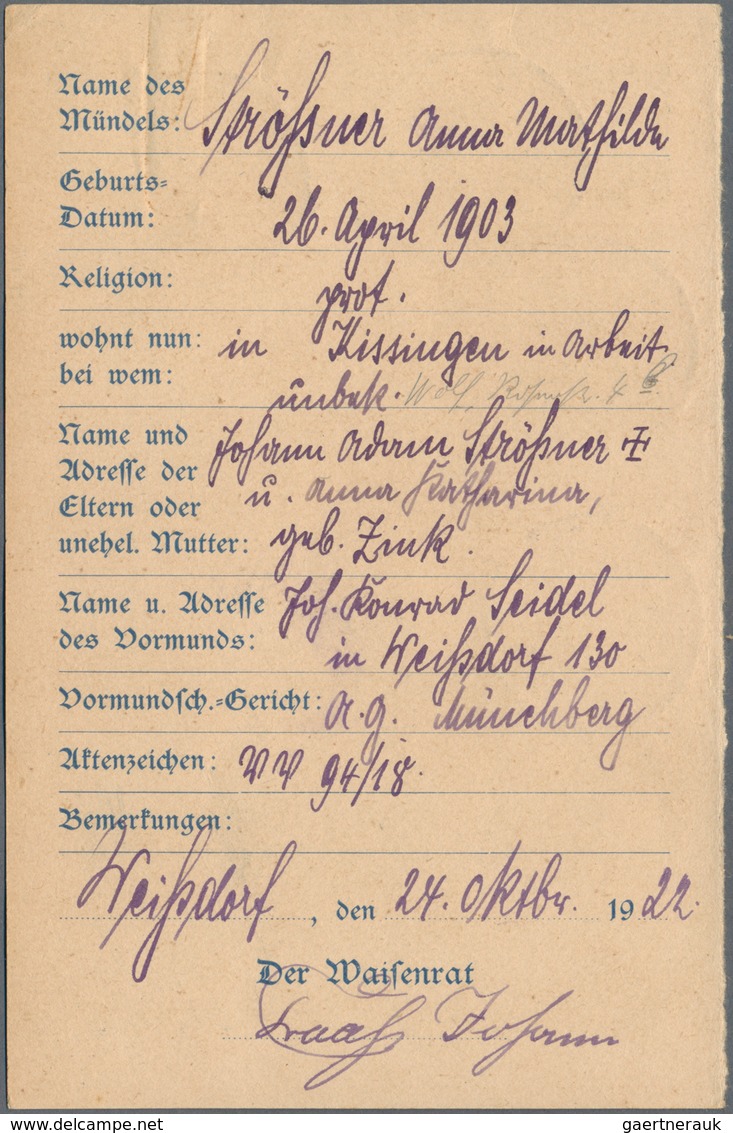 Name des
Mündels: Strößner Anna Mathilde
Geburts=
Datum: 26. April 1903
Religion: prot.
wohnt nun: in Kissingen in Arbeit
bei wem: unbek. Wolf,
Name und Johann Adam Strößner
Adresse der u. Anna Katharina,
Eltern oder
unehel. Mutter: geb. Zink.
Name u. Adresse Joh. Konrad Seidel
des Vormunds: in Weißdorf 130
Vormundsch.=Gericht: A.G. Münchberg
Aktenzeichen: VV 94/18.
Bemerkungen:
Weißdorf, den 24. Oktbr. 1922.
Der Waisenrat
Johann
gaertnerauk